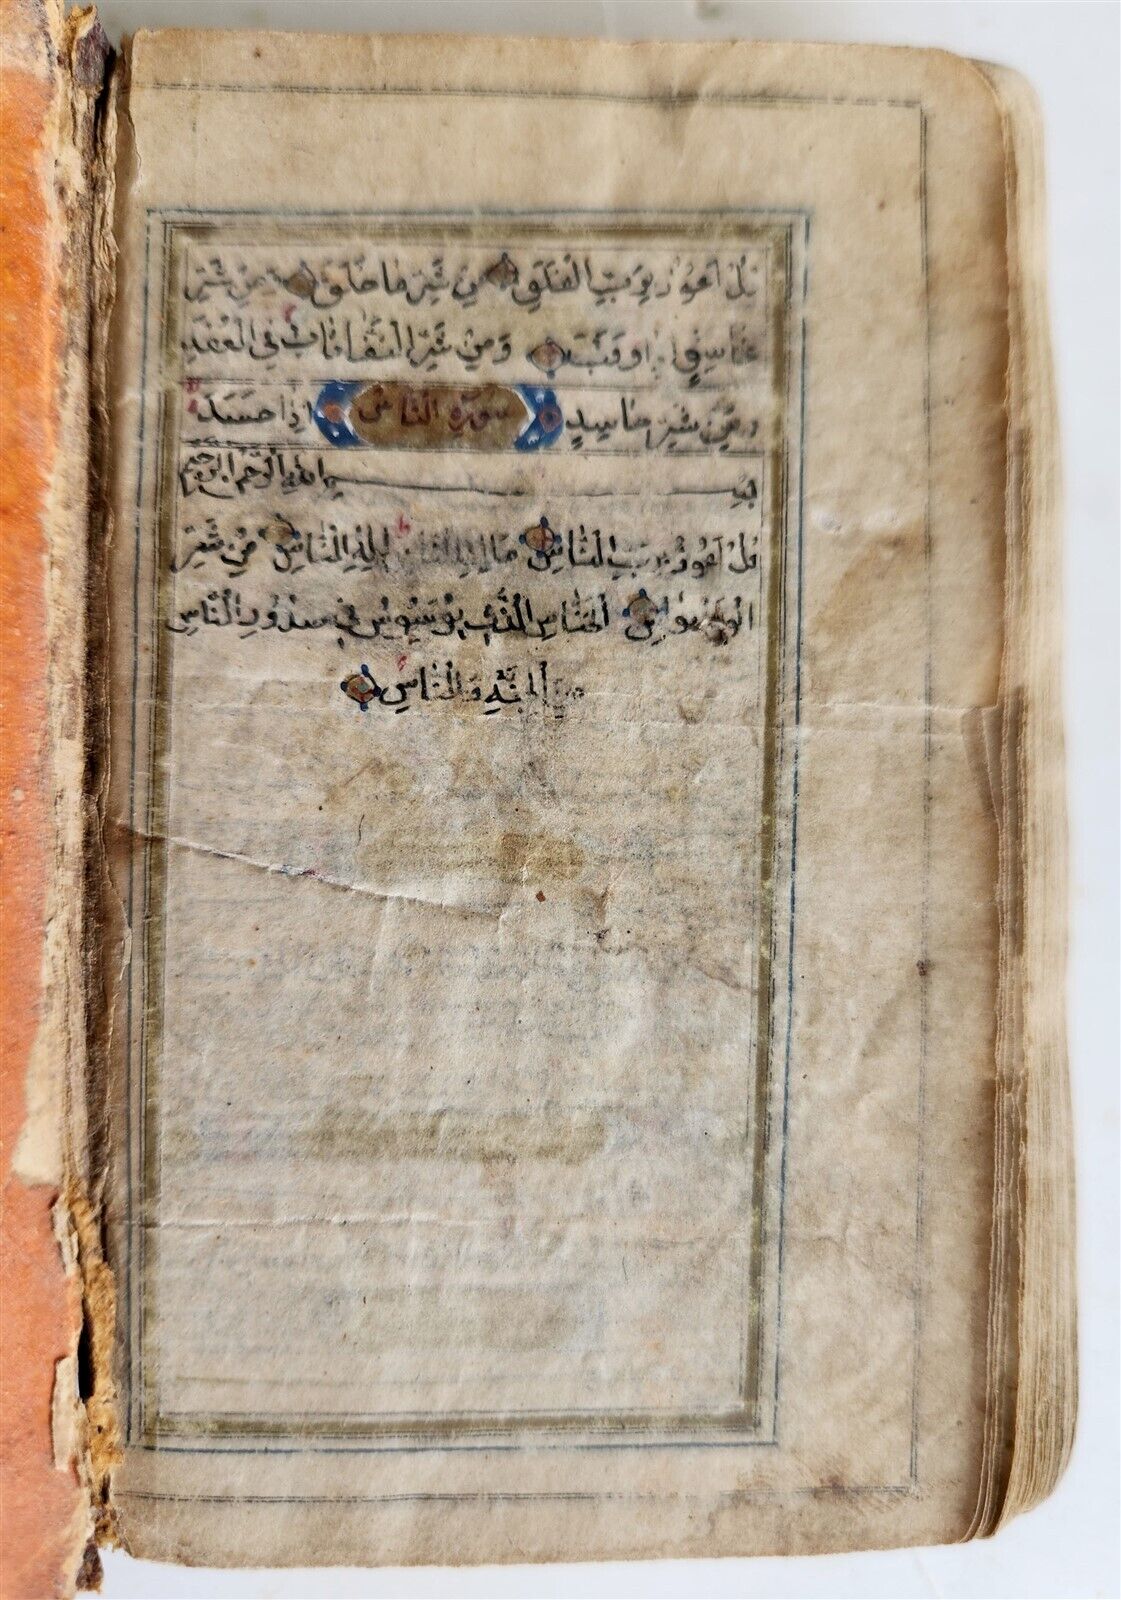 قُلْ اَعُوذُ بِرَبِّ الْفَلَقِ مِنْ شَرِّ مَا خَلَقَ وَمِنْ شَرِّ
غَاسِقٍ اِذَا وَقَبَ وَمِنْ شَرِّ النَّفَّاثَاتِ فِي الْعُقَدِ
وَمِنْ شَرِّ حَاسِدٍ سورة الناس اِذَا حَسَدَ
بسم الله الرحمن الرحيم
قُلْ اَعُوذُ بِرَبِّ النَّاسِ مَلِكِ النَّاسِ اِلٰهِ النَّاسِ مِنْ شَرِّ
الْوَسْوَاسِ الْخَنَّاسِ الَّذِي يُوَسْوِسُ فِي صُدُورِ النَّاسِ
مِنَ الْجِنَّةِ وَالنَّاسِ